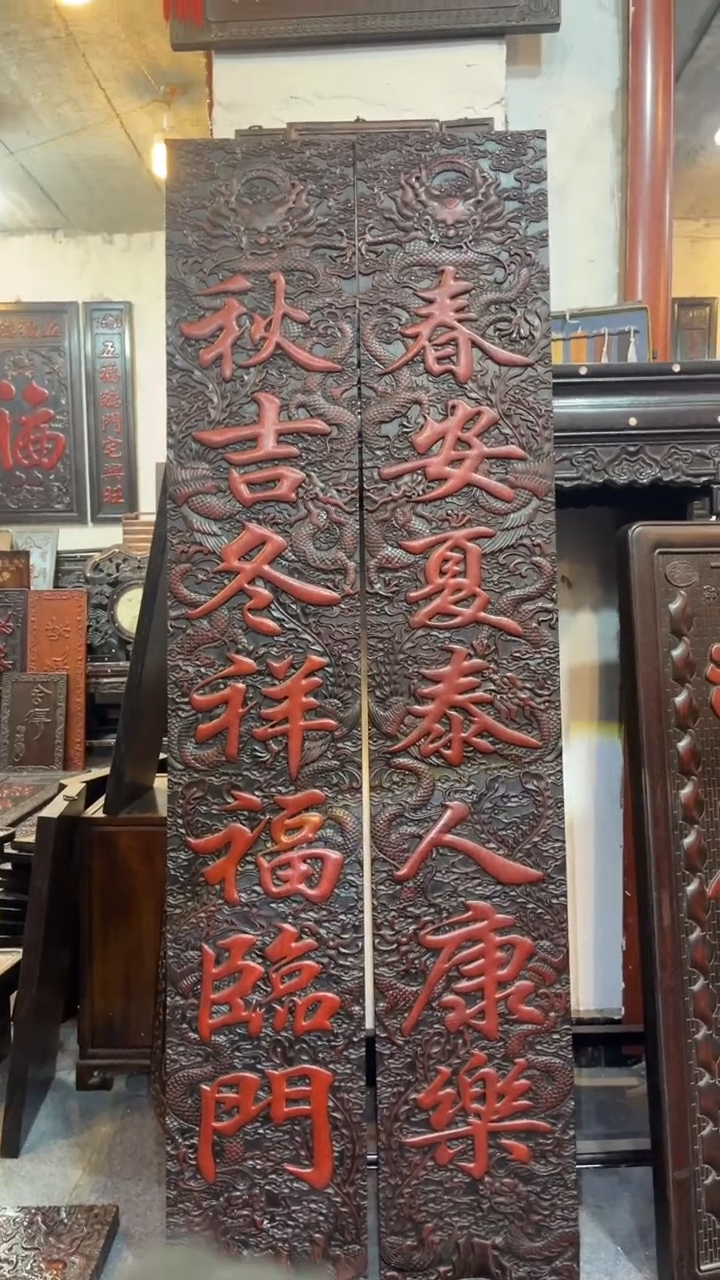 春安夏泰人康樂
秋吉冬祥福臨門
福
五福臨門宅興旺